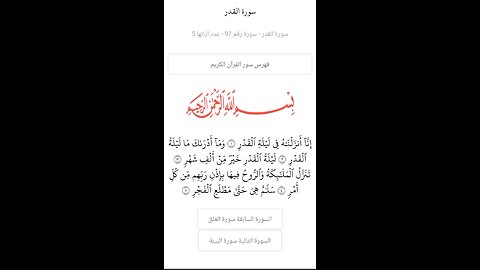 سورة القدر
سورة القدر - سورة رقم 97 - عدد آياتها 5
فهرس سور القرآن الكريم
بِسْمِ اللَّهِ الرَّحْمَٰنِ الرَّحِيمِ
إِنَّآ أَنزَلْنَٰهُ فِى لَيْلَةِ ٱلْقَدْرِ ۝١ وَمَآ أَدْرَىٰكَ مَا لَيْلَةُ
ٱلْقَدْرِ ۝٢ لَيْلَةُ ٱلْقَدْرِ خَيْرٌ مِّنْ أَلْفِ شَهْرٍ ۝٣
تَنَزَّلُ ٱلْمَلَٰٓئِكَةُ وَٱلرُّوحُ فِيهَا بِإِذْنِ رَبِّهِم مِّن كُلِّ
أَمْرٍ ۝٤ سَلَٰمٌ هِىَ حَتَّىٰ مَطْلَعِ ٱلْفَجْرِ ۝٥
السورة السابقة سورة العلق
السورة التالية سورة البينة